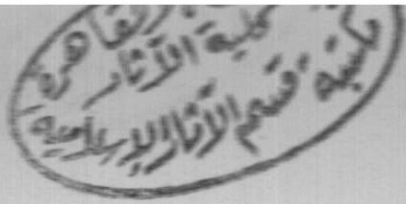 القاهرة
كلية الآثار
مكتبة قسم الآثار الإسلامية